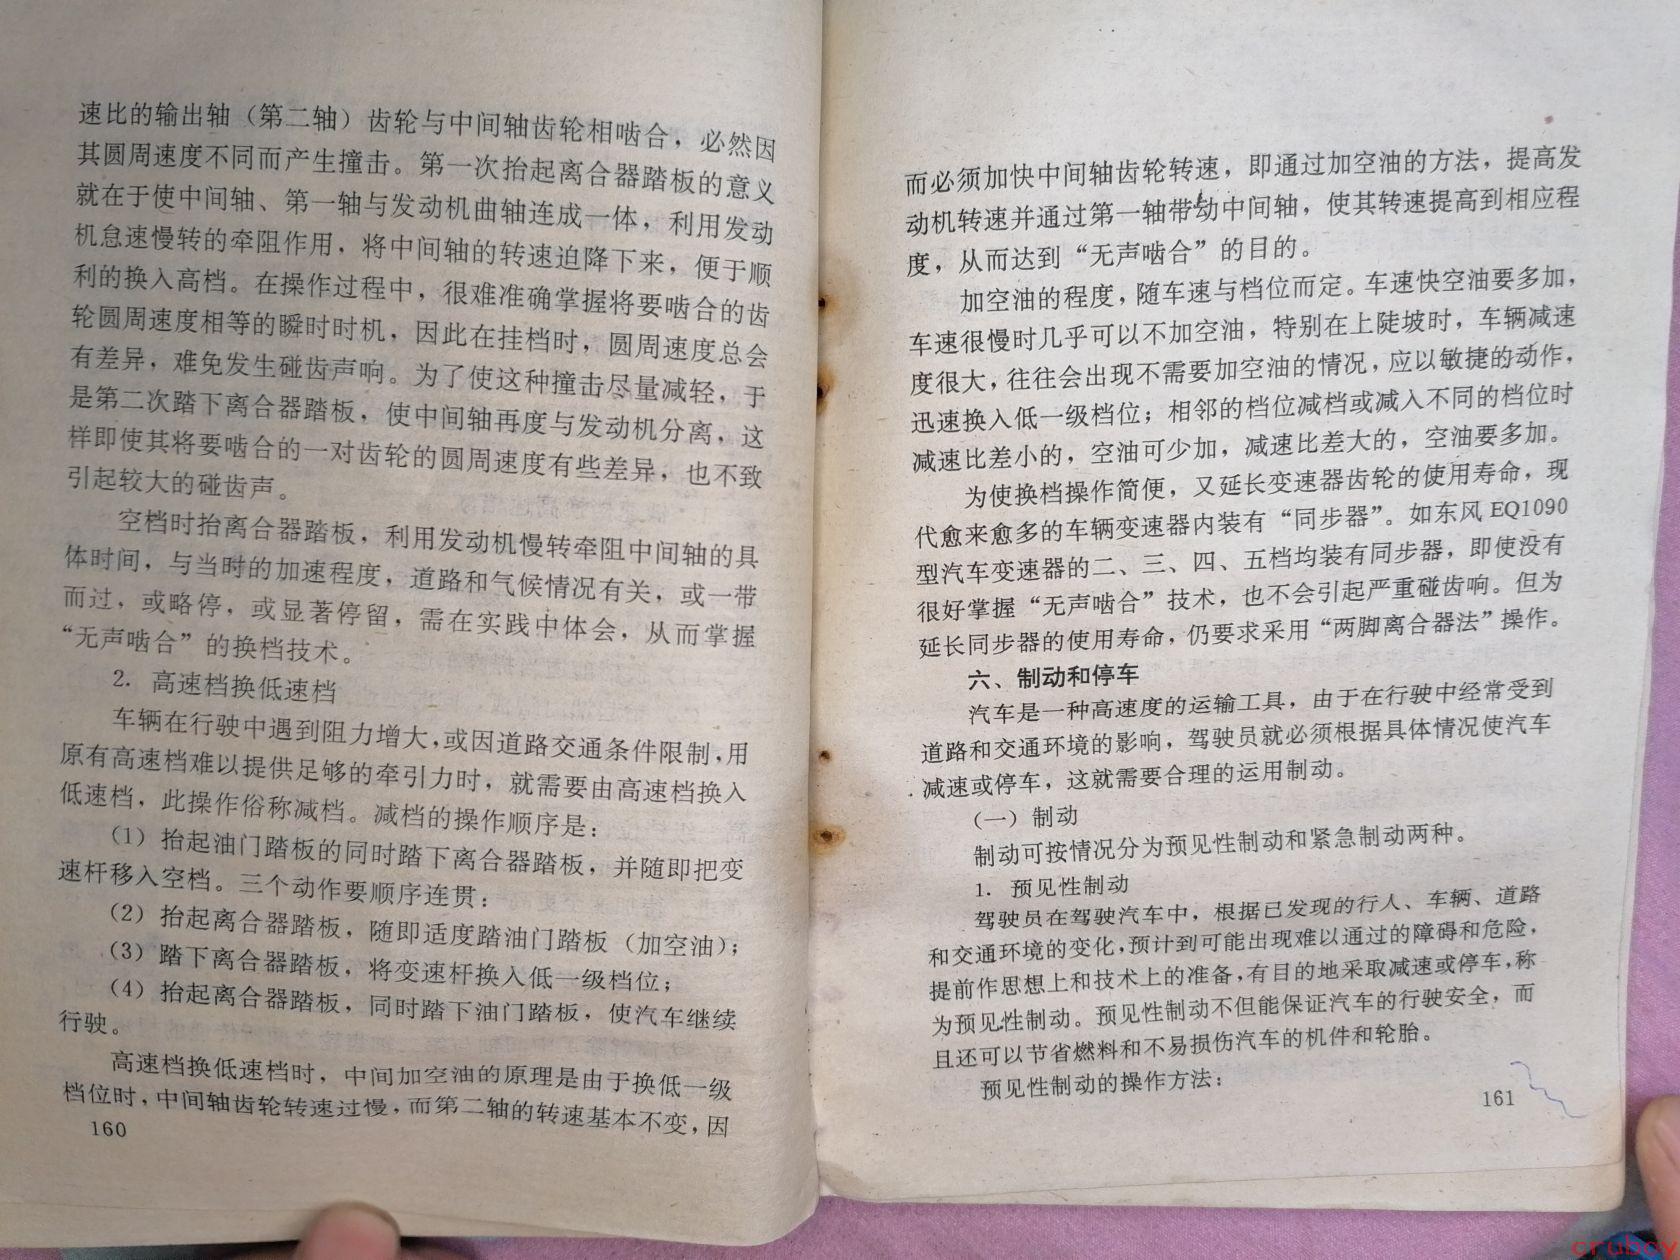 速比的输出轴（第二轴）齿轮与中间轴齿轮相啮合，必然因
其圆周速度不同而产生撞击。第一次抬起离合器踏板的意义
就在于使中间轴、第一轴与发动机曲轴连成一体，利用发动
机怠速慢转的牵阻作用，将中间轴的转速迫降下来，便于顺
利的换入高档。在操作过程中，很难准确掌握将要啮合的齿
轮圆周速度相等的瞬时时机，因此在挂档时，圆周速度总会
有差异，难免发生碰齿声响。为了使这种撞击尽量减轻，于
是第二次踏下离合器踏板，使中间轴再度与发动机分离，这
样即使其将要啮合的一对齿轮的圆周速度有些差异，也不致
引起较大的碰齿声。
空档时抬离合器踏板，利用发动机慢转牵阻中间轴的具
体时间，与当时的加速程度，道路和气候情况有关，或一带
而过，或略停，或显著停留，需在实践中体会，从而掌握
“无声啮合”的换档技术。
2. 高速档换低速档
车辆在行驶中遇到阻力增大，或因道路交通条件限制，用
原有高速档难以提供足够的牵引力时，就需要由高速档换入
低速档，此操作俗称减档。减档的操作顺序是：
（1）抬起油门踏板的同时踏下离合器踏板，并随即把变
速杆移入空档。三个动作要顺序连贯：
（2）抬起离合器踏板，随即适度踏油门踏板（加空油）；
（3）踏下离合器踏板，将变速杆换入低一级档位；
（4）抬起离合器踏板，同时踏下油门踏板，使汽车继续
行驶。
高速档换低速档时，中间加空油的原理是由于换低一级
档位时，中间轴齿轮转速过慢，而第二轴的转速基本不变，因
160
而必须加快中间轴齿轮转速，即通过加空油的方法，提高发
动机转速并通过第一轴带动中间轴，使其转速提高到相应程
度，从而达到“无声啮合”的目的。
加空油的程度，随车速与档位而定。车速快空油要多加，
车速很慢时几乎可以不加空油，特别在上陡坡时，车辆减速
度很大，往往会出现不需要加空油的情况，应以敏捷的动作，
迅速换入低一级档位；相邻的档位减档或减入不同的档位时
减速比差小的，空油可少加，减速比差大的，空油要多加。
为使换档操作简便，又延长变速器齿轮的使用寿命，现
代愈来愈多的车辆变速器内装有“同步器”。如东风 EQ1090
型汽车变速器的二、三、四、五档均装有同步器，即使没有
很好掌握“无声啮合”技术，也不会引起严重碰齿响。但为
延长同步器的使用寿命，仍要求采用“两脚离合器法”操作。
六、制动和停车
汽车是一种高速度的运输工具，由于在行驶中经常受到
道路和交通环境的影响，驾驶员就必须根据具体情况使汽车
减速或停车，这就需要合理的运用制动。
（一）制动
制动可按情况分为预见性制动和紧急制动两种。
1. 预见性制动
驾驶员在驾驶汽车中，根据已发现的行人、车辆、道路
和交通环境的变化，预计到可能出现难以通过的障碍和危险，
提前作思想上和技术上的准备，有目的地采取减速或停车，称
为预见性制动。预见性制动不但能保证汽车的行驶安全，而
且还可以节省燃料和不易损伤汽车的机件和轮胎。
预见性制动的操作方法：
161
crubcy